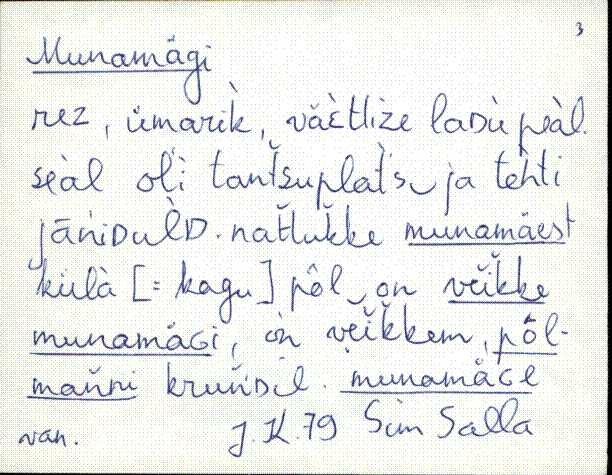 3
Munamägi
rez, ümariK̀, väètlize laDù peàl.
seàl oĺi tantšuplat̀s ja tehti
jāniDulèD. natlukke munamäest
külà [= kagu] pôl on veikke
munamäGi, òn veikkem, pôl-
mañni kruñDil. munamäGe
van. J.K. 79 Siim Salla